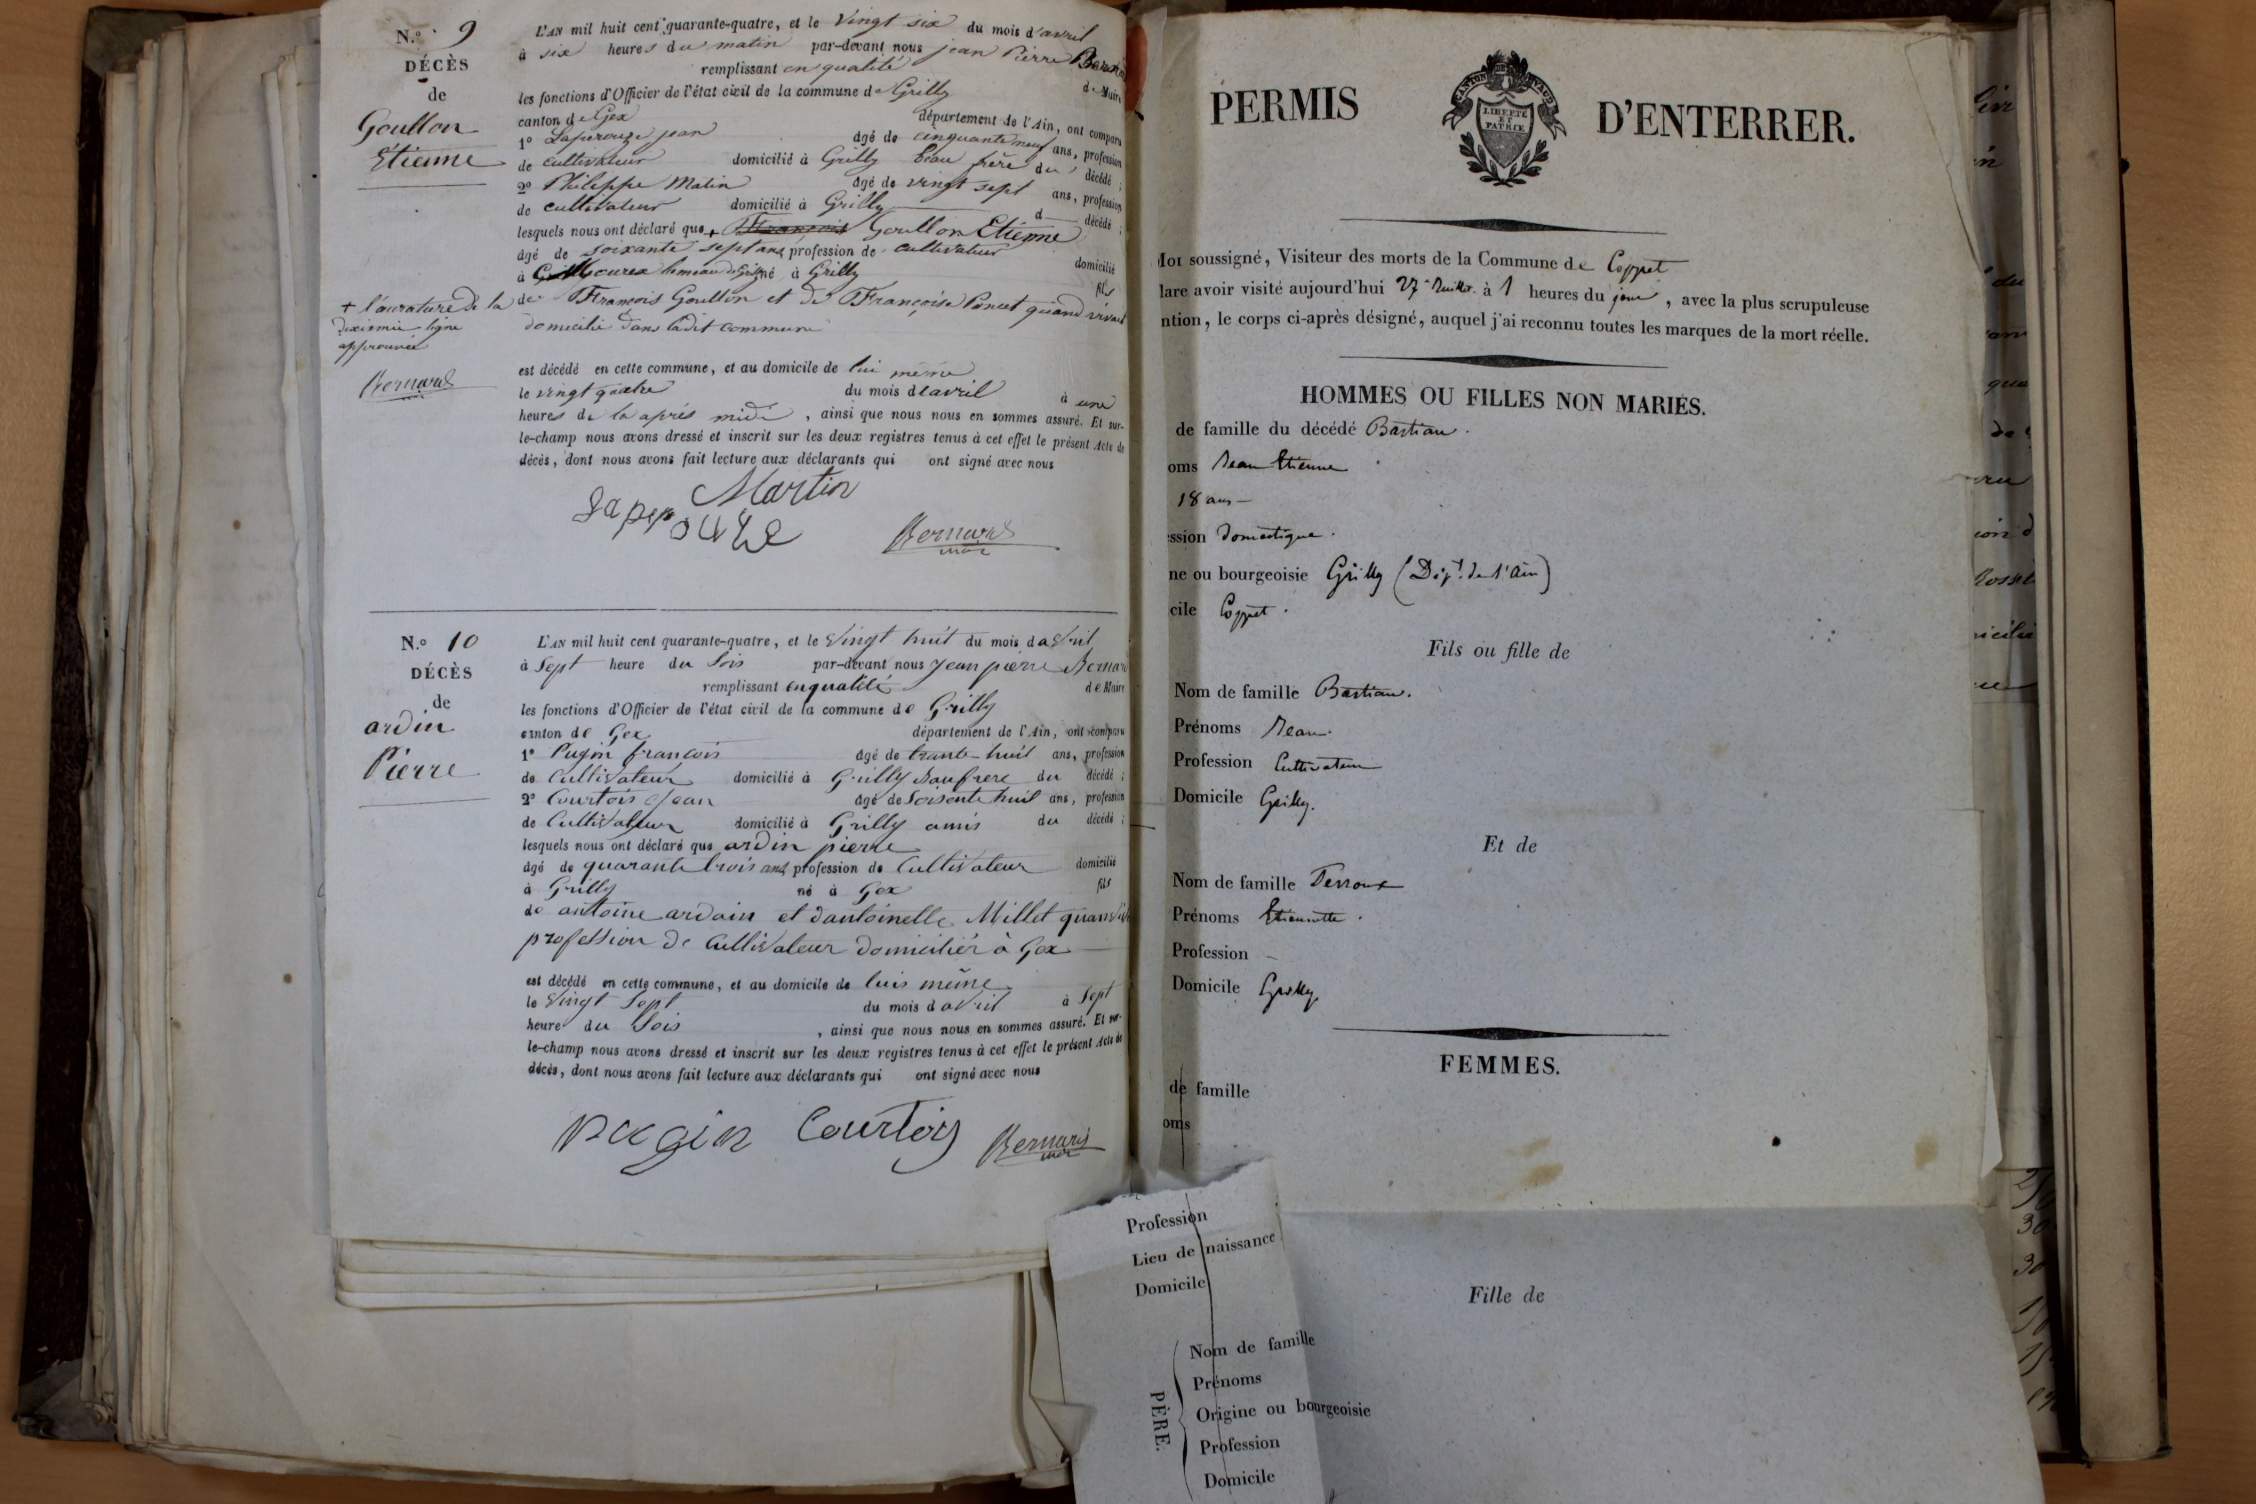 N.º 9
DÉCÈS
de
Goullon
Etienne
L'AN mil huit cent quarante-quatre, et le vingt six du mois d'avril
à six heures du matin par-devant nous jean Pierre
remplissant en qualité de Maire
les fonctions d'Officier de l'état civil de la commune de Grilly
canton de Gex département de l'Ain, ont comparu
1º Laperouze jean âgé de cinquante neuf ans, profession
de cultivateur domicilié à Grilly beau frère du décédé ;
2º Philippe Matin âgé de vingt sept ans, profession
de cultivateur domicilié à Grilly d décédé ;
lesquels nous ont déclaré que + François Goullon Etienne
âgé de soixante sept ans, profession de cultivateur domicilié
à Mourex hameau de né à Grilly fils
de François Goullon et de Françoise Poncet quand vivait
domicilié dans ladit commune
+ l'aurature de la
dixieme ligne
approuvée
Bernard
est décédé en cette commune, et au domicile de lui même
le vingt quatre du mois d'avril à une
heures de la après midi, ainsi que nous nous en sommes assuré. Et sur-
le-champ nous avons dressé et inscrit sur les deux registres tenus à cet effet le présent Acte de
décès, dont nous avons fait lecture aux déclarants qui ont signé avec nous
Martin
Bernard
mair
N.º 10
DÉCÈS
de
ardin
Pierre
L'AN mil huit cent quarante-quatre, et le vingt huit du mois d avril
à Sept heure du Sois par-devant nous jean pierre Bernard
remplissant en qualité de Maire
les fonctions d'Officier de l'état civil de la commune de Grilly
canton de Gex département de l'Ain, ont comparu
1º Pugin francois âgé de trante-huit ans, profession
de Cultivateur domicilié à Grilly Baufrere du décédé ;
2º Courtois Jean âgé de Soisente huit ans, profession
de Cultivateur domicilié à Grilly amis du décédé ;
lesquels nous ont déclaré que ardin pierre
âgé de quarante trois ans, profession de Cultivateur domicilié
à Grilly né à Gex fils
de antoine ardain et dantoinette Millet
profession de Cultivateur domiciliér à Gex
est décédé en cette commune, et au domicile de luis même
le vingt Sept du mois d avril à Sept
heure du Sois, ainsi que nous nous en sommes assuré. Et sur-
le-champ nous avons dressé et inscrit sur les deux registres tenus à cet effet le présent Acte de
décès, dont nous avons fait lecture aux déclarants qui ont signé avec nous
pugin Courtois Bernard
mair
PERMIS D'ENTERRER.
CANTON DE VAUD
LIBERTÉ
ET
PATRIE
soussigné, Visiteur des morts de la Commune de Coppet
lare avoir visité aujourd'hui 27 Juillet à 1 heures du jour, avec la plus scrupuleuse
ntion, le corps ci-après désigné, auquel j'ai reconnu toutes les marques de la mort réelle.
HOMMES OU FILLES NON MARIÉS.
de famille du décédé Bastian.
oms Jean Etienne
18 ans
ssion Domestique.
ne ou bourgeoisie Grilly (Dépt. de l'Ain)
cile Coppet.
Fils ou fille de
Nom de famille Bastian.
Prénoms Jean.
Profession Cultivateur
Domicile Grilly.
Et de
Nom de famille Perroux
Prénoms Etiennette.
Profession -
Domicile Grilly
FEMMES.
de famille
oms
Profession
Lieu de naissance
Domicile
Fille de
PÈRE.
Nom de famille
Prénoms
Origine ou bourgeoisie
Profession
Domicile